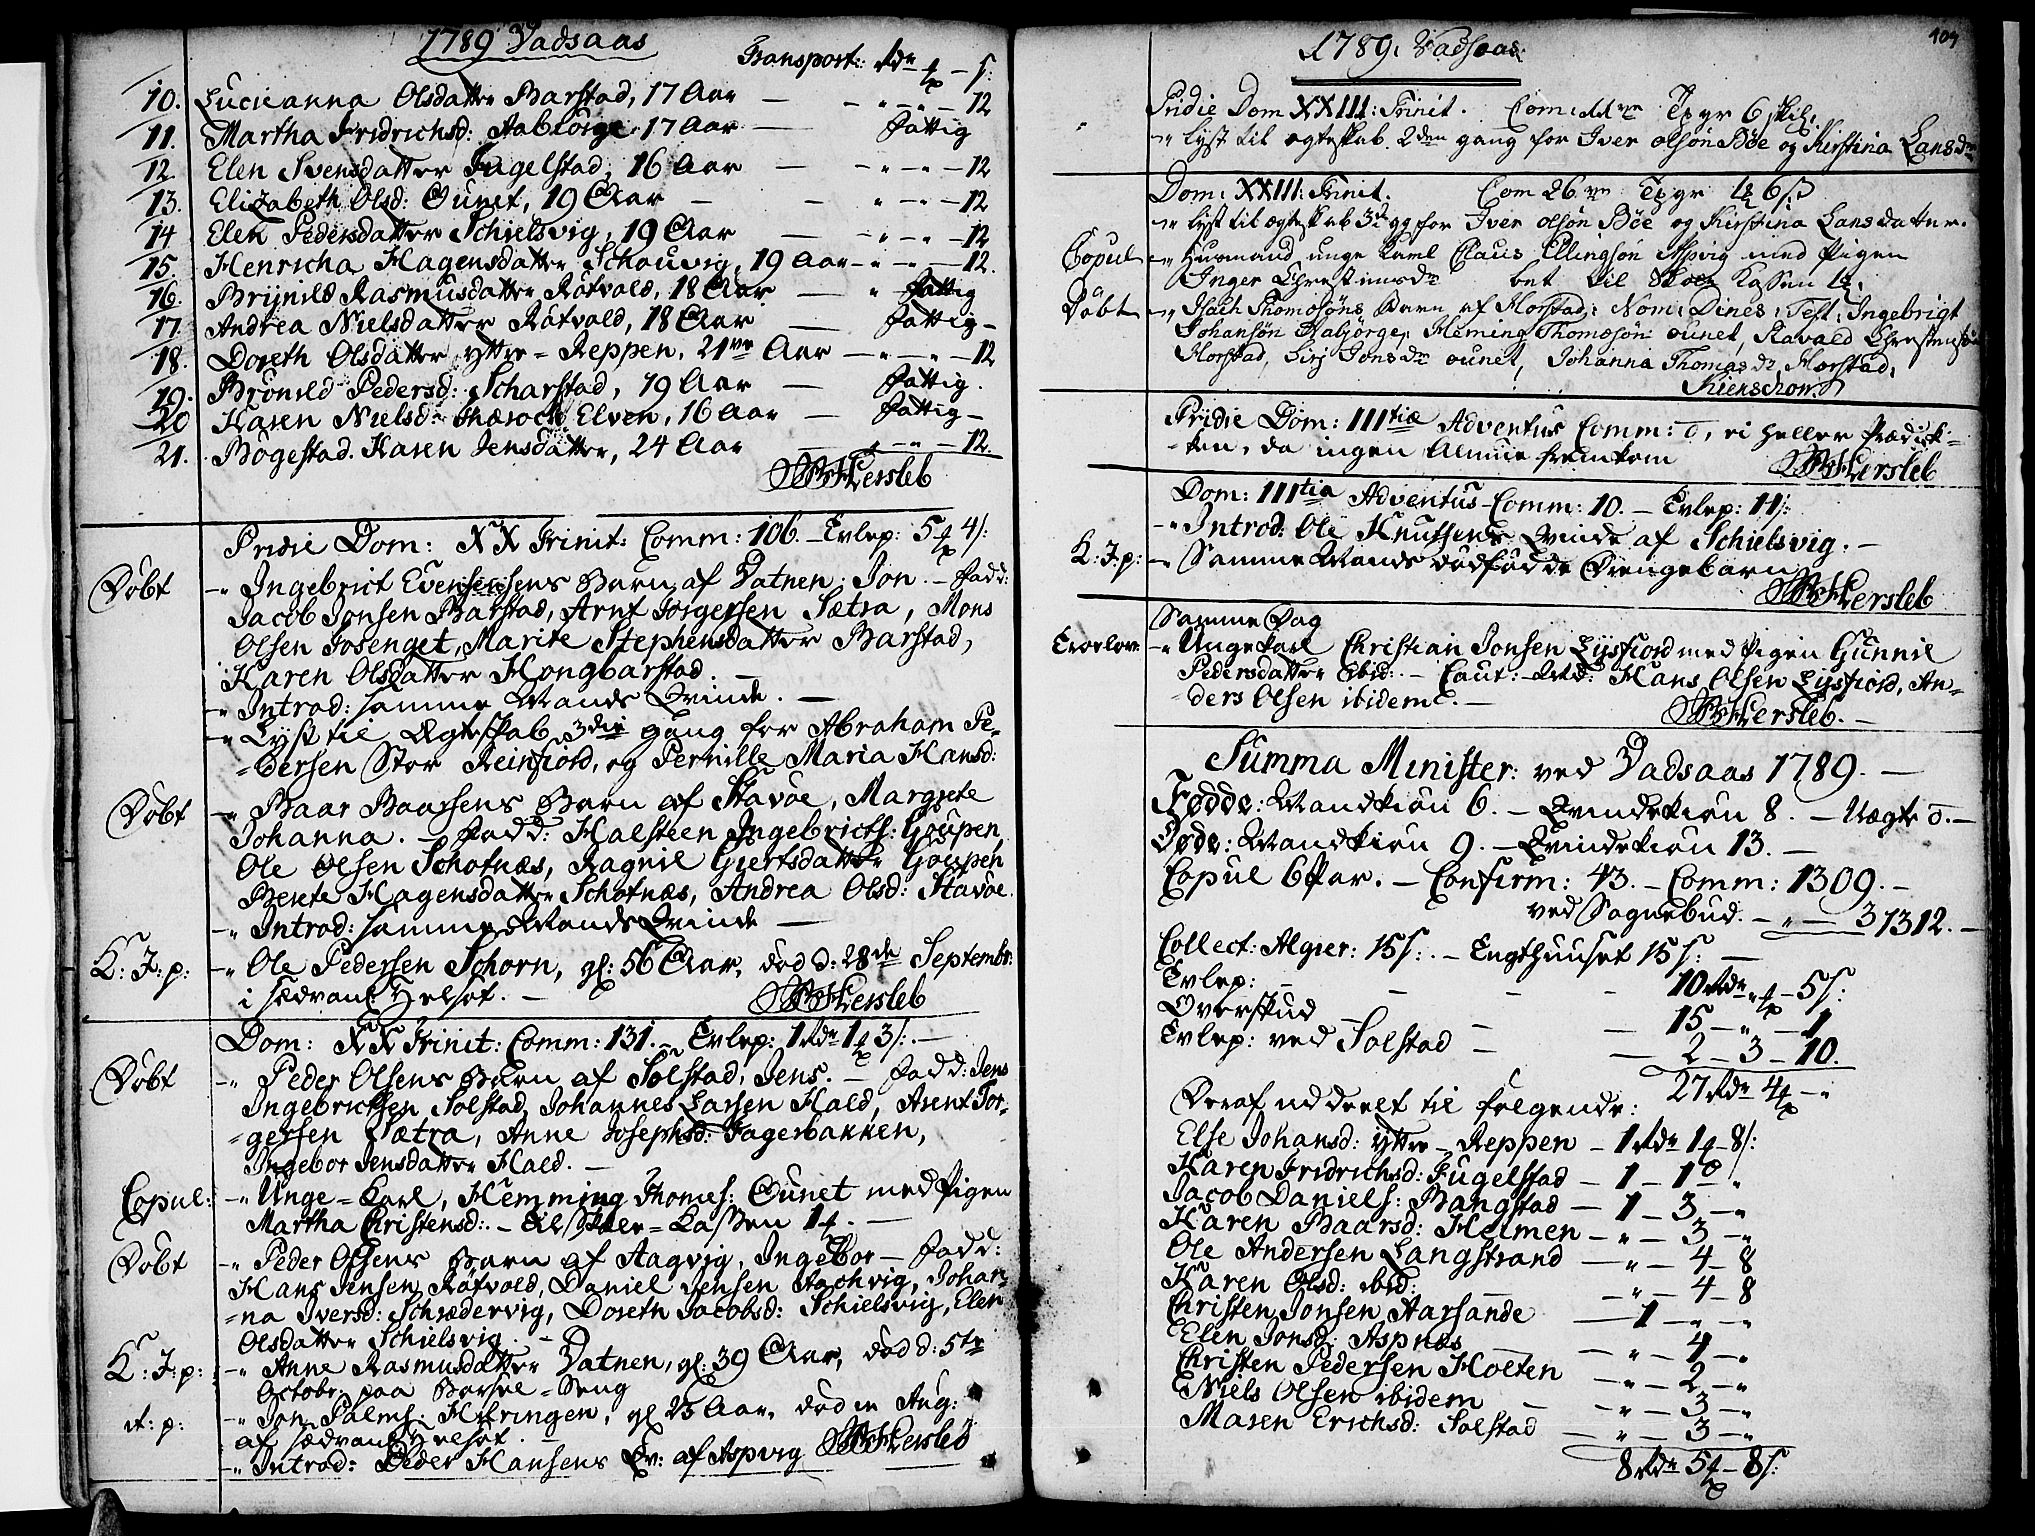 1789 Vadsaas
Transport: Rdr ɟ – s:
10. Lucieanna Olsdatter Barstad, 17 Aar — - „ - „ - 12
11. Martha Fridrichsd: Aabiörge, 17 Aar — fattig
12. Elen Svensdatter Fugelstad, 16 Aar — - „ - „ - 12
13. Elizabeth Olsd: Ounet, 19 Aar — - „ - - 12
14 Elen Pedersdatter Schielsvig, 19 Aar — - „ - „ - 12
15. Henricha Hagensdatter Schouvig, 19 Aar - „ - „ - 12.
16. Brynild Rasmusdatter Råtvold, 18 Aar — „ fattig
17. Andrea Nielsdatter Råtvold, 18 Aar — fattig -
18. Doreth Olsdatter yttre=Reppen, 21 Aar — „ - „ - 12
19. Brönild Pedersd: Scharstad, 19 Aar — fattig.
20 Karen Nielsd: Elven, 16 Aar — fattig -
21. Bogestad. Karen Jensdatter, 24 Aar — - „ - 12.
Hersleb
Pridie Dom: XX Trinit: Comm: 106. – Evlep: 5 ɟ 4 s:
Døbt -„ Ingebrict Evensensens Barn af Vatnen, Jon. – Fadd:
Jacob Jonsen Barstad, Arnt Jörgersen Sætra, Mons
Olsen Josenget, Marite Stephensdatter Barstad,
Karen Olsdatter Hongbarstad. –
-„ Introd: samme Mands Qvinde. —
-„ Lyst til Ægteskab 3die gang for Abraham Pe-
=dersen Stor Reinfiord, og Pernille Maria Hansd:
Døbt -„ Baar Baarsens Barn af Stavöe, Margrete
Johanna. – Fadd: Halsteen Ingebricts: Goupen,
Ole Olsen Schotnæs, Ragnil Giertsdatter Goupen
Berete Hagensdatter Schotnæs, Andrea Olsd: Stavöe.
-„ Introd: samme Mands Qvinde —
K: J: p: -„ Ole Pedersen Schorn, gl: 56 Aar, død d: 28de Septembr:
i sædvanl: Helset. – Hersleb
Dom: XX Trinit: Comm: 131. – Evlep: 1 Rdr 1 ɟ 3 s. –
Døbt -„ Peder Olsens Barn af Solstad, Jens. – Fadd: Jens
Ingebrictsen Solstad, Johannes Larsen Hald, Arent Jör-
=gersen Sætra, Anne Josephsd: Fagerbakken,
Ingebor Jensdatter Hald. –
Copul: -„ Unge=Karl, Hemming Thomes: Ounet med Pigen
Martha Christensd: – til Skole=Cassen 1 ɟ. –
Døbt -„ Peder Olsens Barn af Aagvig, Ingebor – Fadd:
Hans Jensen Råtvold, Daniel Jensen Aachvig, Johan-
=na Iversd: Schrædervig, Doreth Jacobsd: Schielsvig, Elen
Olsdatter Schielsvig. –
K: J: p: -„ Anne Rasmusdatter Vatnen, gl: 39 Aar, død d: 5te
Octobr: paa Barsel=Seng
-„ Jon Palms: Helringen, gl 25 Aar, død in Aug:
af sædvanl: Helset. – Hersleb
-„ Introd: Peder Hansens Qv: af Aspvig
1789. Vadsaas.
104
Pridie Dom XXIII: Trinit. Com: 44 Tpgr 6 skil:
-„ lyst til ægteskab 2den gang for Iver olsøn Bøe og Kirstina Lansdr
Dom: XXIII: Trinit. Com 26 Tpgr
-„ lyst til ægteskab 3d gg for Iver olsøn Bøe og Kirstina Lansdatter.
Copul -„ Husmand unge Karl Claus Ellingsøn Aspvig med Pigen
Inger Christensdr bet til Skole Kassen
Døbt -„ Isach Thomasøns Barn af Horstad: Nom: Dines: Test: Ingebrigt
Johansøn Aabjørge, Heming Thomasøn ounet, Ravald Chrestensøn
Horstad, Siri Jonsdr ounet, Johanna Thomasdr Horstad.
Pridie Dom: IIItiæ Adventus Comm: ō, ei heller Prædick-
-ken, da ingen Almue fremkom Hersleb
Dom: IIItia Adventus Comm: 10. – Evlep: 11 s:
-„ Introd: Ole Knutsens Qvinde af Schielsvig. –
K: J: p: -„ Samme Mands dødfødde Drengebarn
Hersleb
Samme Dag
Trolov -„ Ungekarl Christian Jonsen Lysfiord med Pigen Gunnil
Pedersdatter Ebid: – Caut: – Hans Olsen Lysfiord, An-
ders Olsen ibidem. –
Hersleb. –
Summa Minister: ved Vadsaas 1789. –
Fødde: Mandkiøn 6. – Qvindekiøn 8. – Uægte ō. –
Døde: Mandkiøn 9. – Qvindekiøn 13. –
Copul 6 Par. – Confirm: 43. – Comm: 1309. –
ved Sognebud. – „ — 3 1312. –
Collect: Algier: 15 s: – Tugthuuset 15 s: –
Evlep: – – – 10 Rdr „ ɟ – 5 s:
Overskud – – 15 – „ – 1
Evlep: ved Solstad – – 2 – 3 – 10.
27 Rdr 4 ɟ – „
Deraf uddeelt til følgende:
Else Johansd: yttre – Reppen – 1 Rdr 1 ɟ – 8 s:
Karen Fridrichsd: Fugelstad – 1 – 1 – „
Jacob Daniels: Bangstad – 1 – 3 – „
Karen Baarsd: Helmen – „ – 3 – „
Ole Andersen Langstrand – „ – 4 – 8
Karen Olsd: ibid: – „ – 4 – 8
Christen Jonsen Aarsande – 1 – „ – „
Elen Jonsd: Aspnæs – „ – 4 – „
Christen Pedersen Holten – „ – 2 – „
Niels Olsen ibidem – „ – 3 – „
Maren Erichsd: Solstad – „ – 3 – „
8 Rdr 5 ɟ – 8 s: